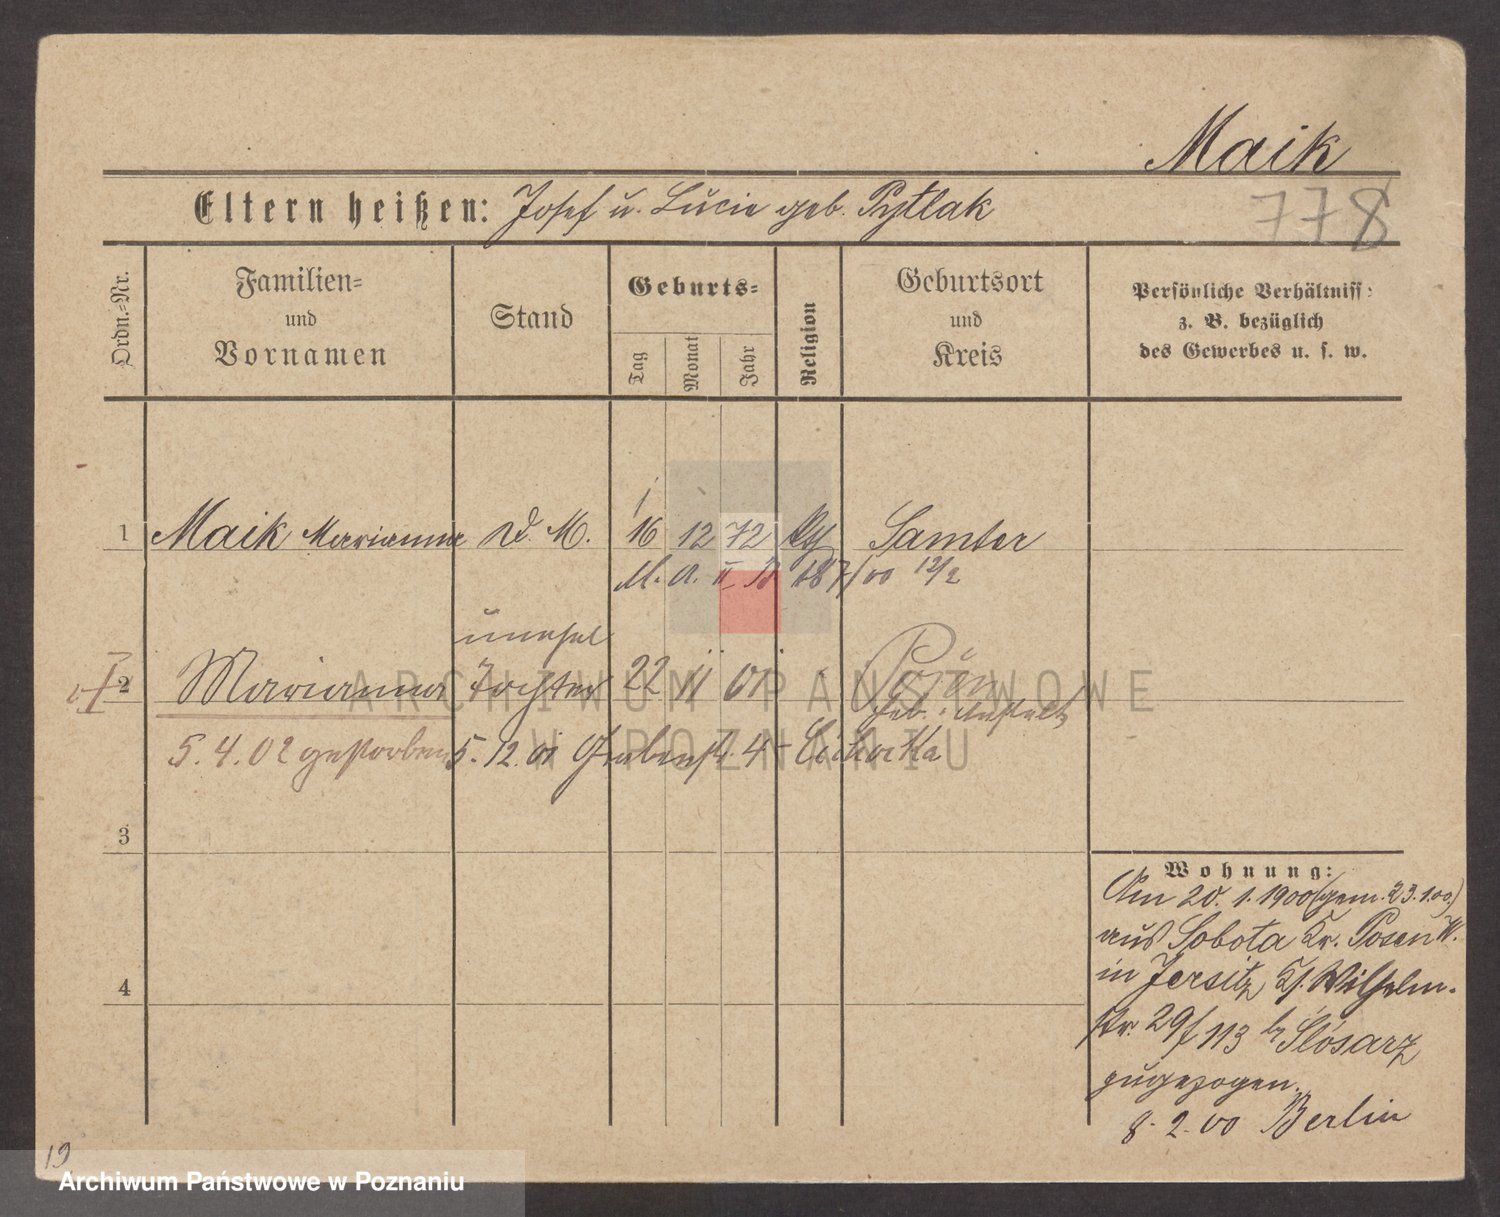 Maik
Eltern heißen: Josef u. Lucie geb. Pytlak
778
Ordn.-Nr.
Familien-
und
Vornamen
Stand
Geburts-
Tag
Monat
Jahr
Religion
Geburtsort
und
Kreis
Persönliche Verhältniss
z. B. bezüglich
des Gewerbes u. s. w.
1 Maik Marianna D. M. 16 12 72 Samter
M. A. II B 187/00 12/2
unehel
2 Marianna Tochter 22 11 01 Posen
5.4.02 gestorben 5.12.01 Grabenstr. 4
3
4
Wohnung:
Am 20. 1. 1900 (gem. 23.1.00.)
aus Sobota Kr. Posen W.
in Jersitz Ks. Wilhelm-
str. 29/113 b/ Ślósarz
zugezogen.
8. 2. 00 Berlin
19
ARCHIWUM PAŃSTWOWE
W POZNANIU
Archiwum Państwowe w Poznaniu